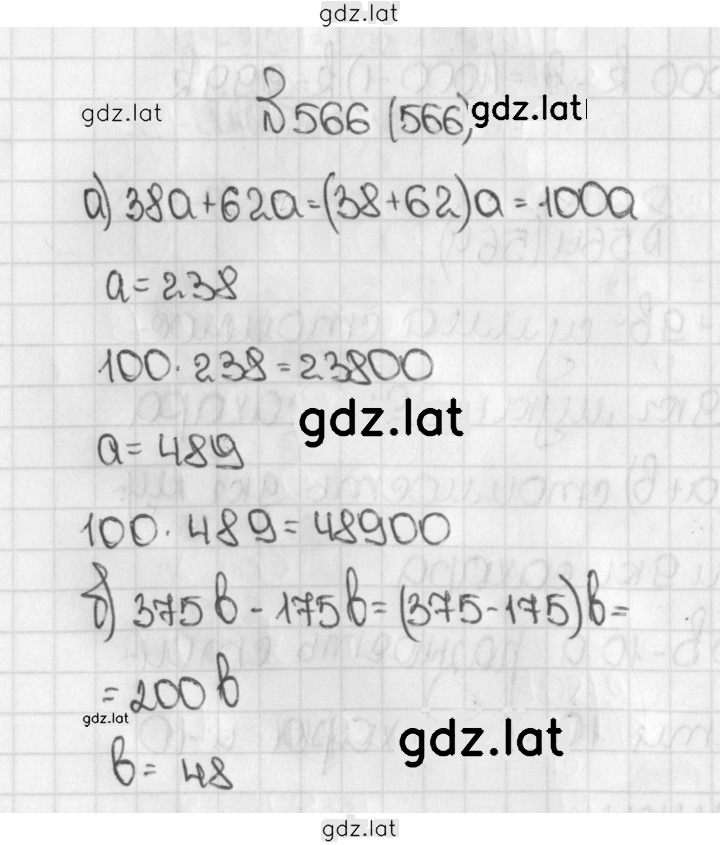 gdz.lat
№ 566 (566) gdz.lat
gdz.lat
а) 38а+62а=(38+62)а=100а
а=238
100·238=23800
gdz.lat
а=489
100·489=48900
б) 375в-175в=(375-175)в=
=200в
gdz.lat
gdz.lat
в=48
gdz.lat